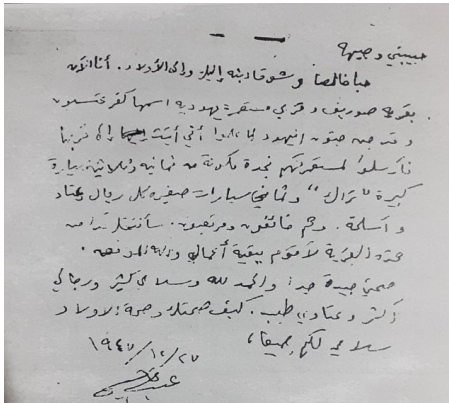 حبيبتي وجيهة
حبا خالصا وشوقا دبنه إليك وإلى الأولاد. أنا الآن
بقرية صوريف وقربي مستعمرة يهودية اسمها كفر عتسيون
وقد جن جنون اليهود لما علموا أني أتيت إلى قربها
فأرسلوا لمستعمرتهم نجدة مكونة من ثمانية وثلاثين سيارة
كبيرة "تراك" وثماني سيارات صغيرة كل ريال وعتاد
وأسلحة. وهم خائفون ومرتعبون. سأنتقل غدا من
هذه القرية لأقوم ببقية أعمالي والله الموفق.
صحتي جيدة جدا والحمد لله وسلاحي كثير ورجالي
أكثر وعتادي طيب. كيف صحتك وصحة الأولاد
سلامي لكم جميعا،
١٩٤٧/١٢/٢٧